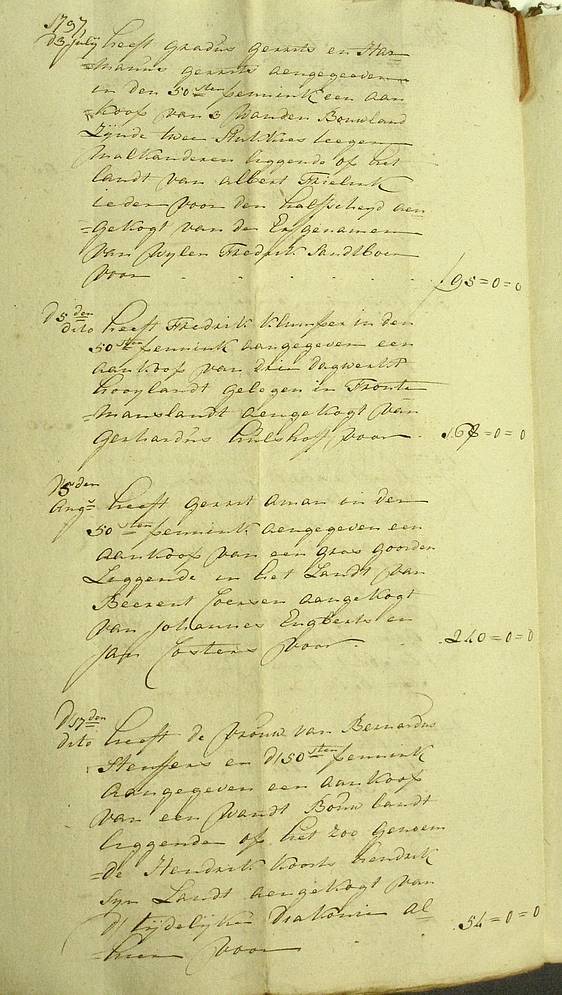 1797
d3 july heeft gradus gerrits en Har=
=manus gerrits aengegeeven
in den 50sten pennink een aan
koop van 3 wanden Bouwland
Zijnde twee Stukkies teegen
malkanderen liggende of het
landt van albert Frielink
ieder voor den halfscheyd aen
=gekogt van de Erfgenamen
van wylen Fredrik Sandtboer
voor f 95=0=0
d5den
dito heeft Fredrik Klumper in den
50sten pennink aangegeven een
aankoop van drie dagwerkt
hooylandt gelegen in Fronte
=manslandt aengekogt van
Gerhardus hulshoff voor 167=0=0
d5den
Augs heeft gerrit aman in den
50sten pennink aengegeven een
aankoop van een gras goorden
Leggende in het Landt van
Beerent Coersen aangekogt
van Johannes Engberts en
Jan Costers voor 240=0=0
d17den
dito heeft de vrouw van Bernardus
Steussers en d' 50sten pennink
aangegeven een aankoop
van een wandt Bouw landt
liggende of het zoo genoem
=de Hendrik Koorts hendrik
syn Landt aengekogt van
d' tijdelijke Diakonie al
=hier voor 54=0=0